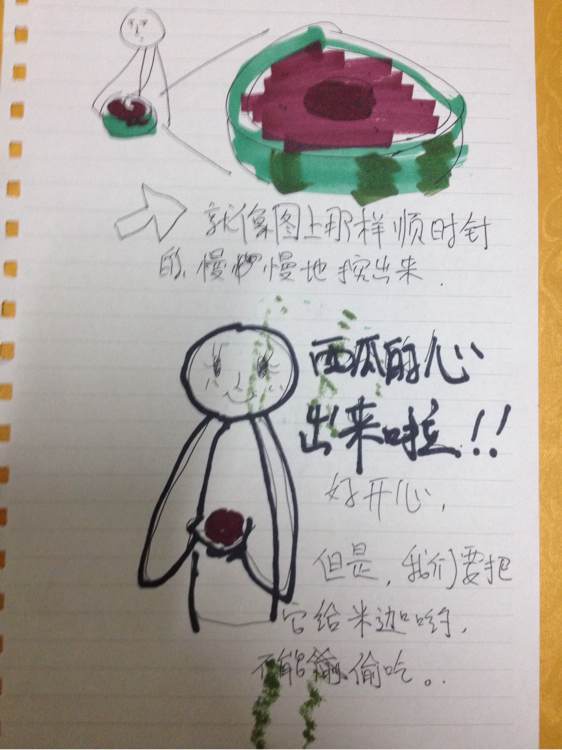 就像图上那样顺时针
的,慢慢慢地挖出来.
西瓜的心
出来啦!!
好开心,
但是,我们要把
它给米边哟,
不能偷偷吃。.